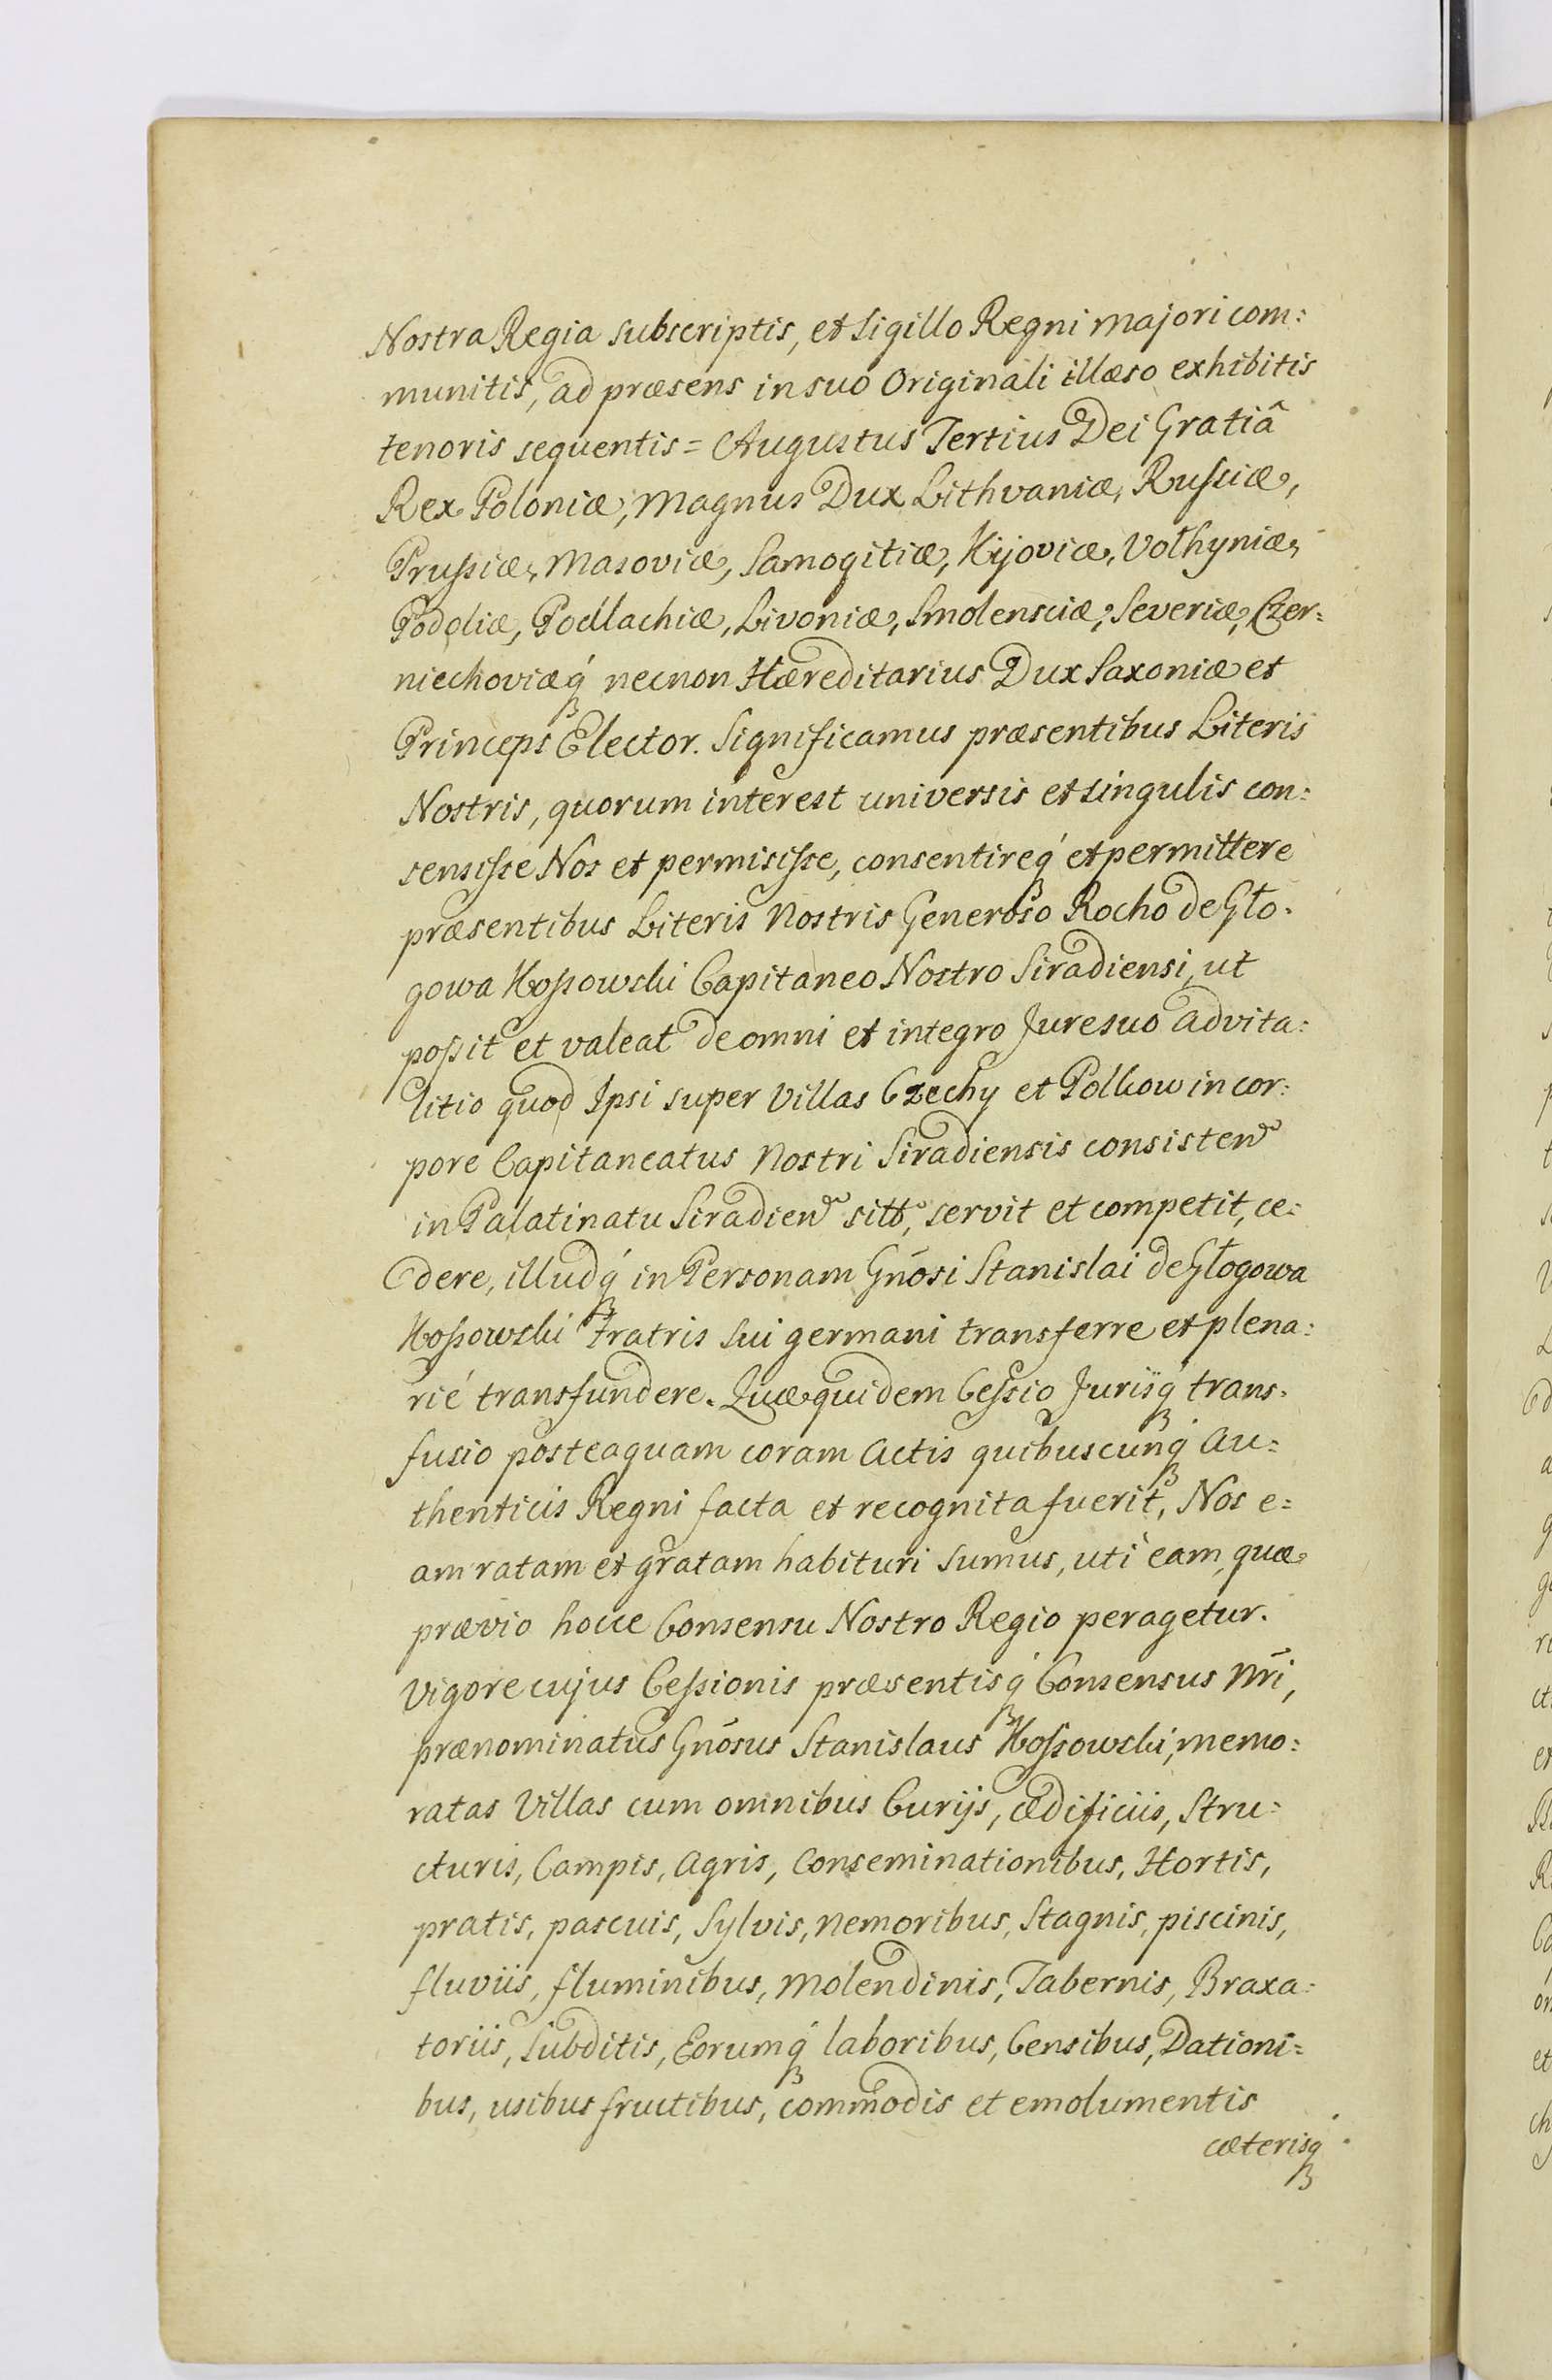 Nostra Regia subscriptis, et Sigillo Regni majori com:
munitis, ad præsens in suo Originali illæso exhibitis
tenoris sequentis = Augustus Tertius Dei Gratiâ
Rex Poloniæ, Magnus Dux Lithvaniæ, Russiæ,
Prussiæ, Masoviæ, Samogitiæ, Kijoviæ, Volhyniæ,
Podoliæ, Podlachiæ, Livoniæ, Smolensciæ, Severiæ, Czer:
niechoviæq́ necnon Hæreditarius Dux Saxoniæ et
Princeps Elector. Significamus præsentibus Literis
Nostris, quorum interest universis et singulis con:
sensisse Nos et permisisse, consentireq́ et permittere
præsentibus Literis Nostris Generoso Rocho de Gło:
gowa Kossowski Capitaneo Nostro Siradiensi, ut
possit et valeat de omni et integro Jure suo advita:
litio quod Ipsi super Villas Czechy et Polkow in cor:
pore Capitaneatus Nostri Siradiensis consisten
in Palatinatu Siradien sitt, servit et competit, ce:
dere, illudq́ in Personam Gnōsi Stanislai de Głogowa
Kossowski Fratris Sui germani transferre et plena:
rié transfundere. Quæ quidem Cessio Jurisq́ trans:
fusio posteaquam coram Actis quibuscunq́ Au:
thenticis Regni facta et recognita fuerit, Nos e:
am ratam et gratam habituri sumus, uti eam, quæ
prævio hocce Consensu Nostro Regio peragetur.
Vigore cujus Cessionis præsentisq́ Consensus Nr̄i,
prænominatus Gnōsus Stanislaus Kossowski, memo:
ratas Villas cum omnibus Curijs, ædificiis, Stru:
cturis, Campis, Agris, Conseminationibus, Hortis,
pratis, pascuis, Sylvis, nemoribus, Stagnis, piscinis,
fluviis, fluminibus, Molendinis, Tabernis, Braxa:
toriis, Subditis, Eorumq́ laboribus, Censibus, Dationi:
bus, usibus fructibus, commodis et emolumentis
cæterisq́